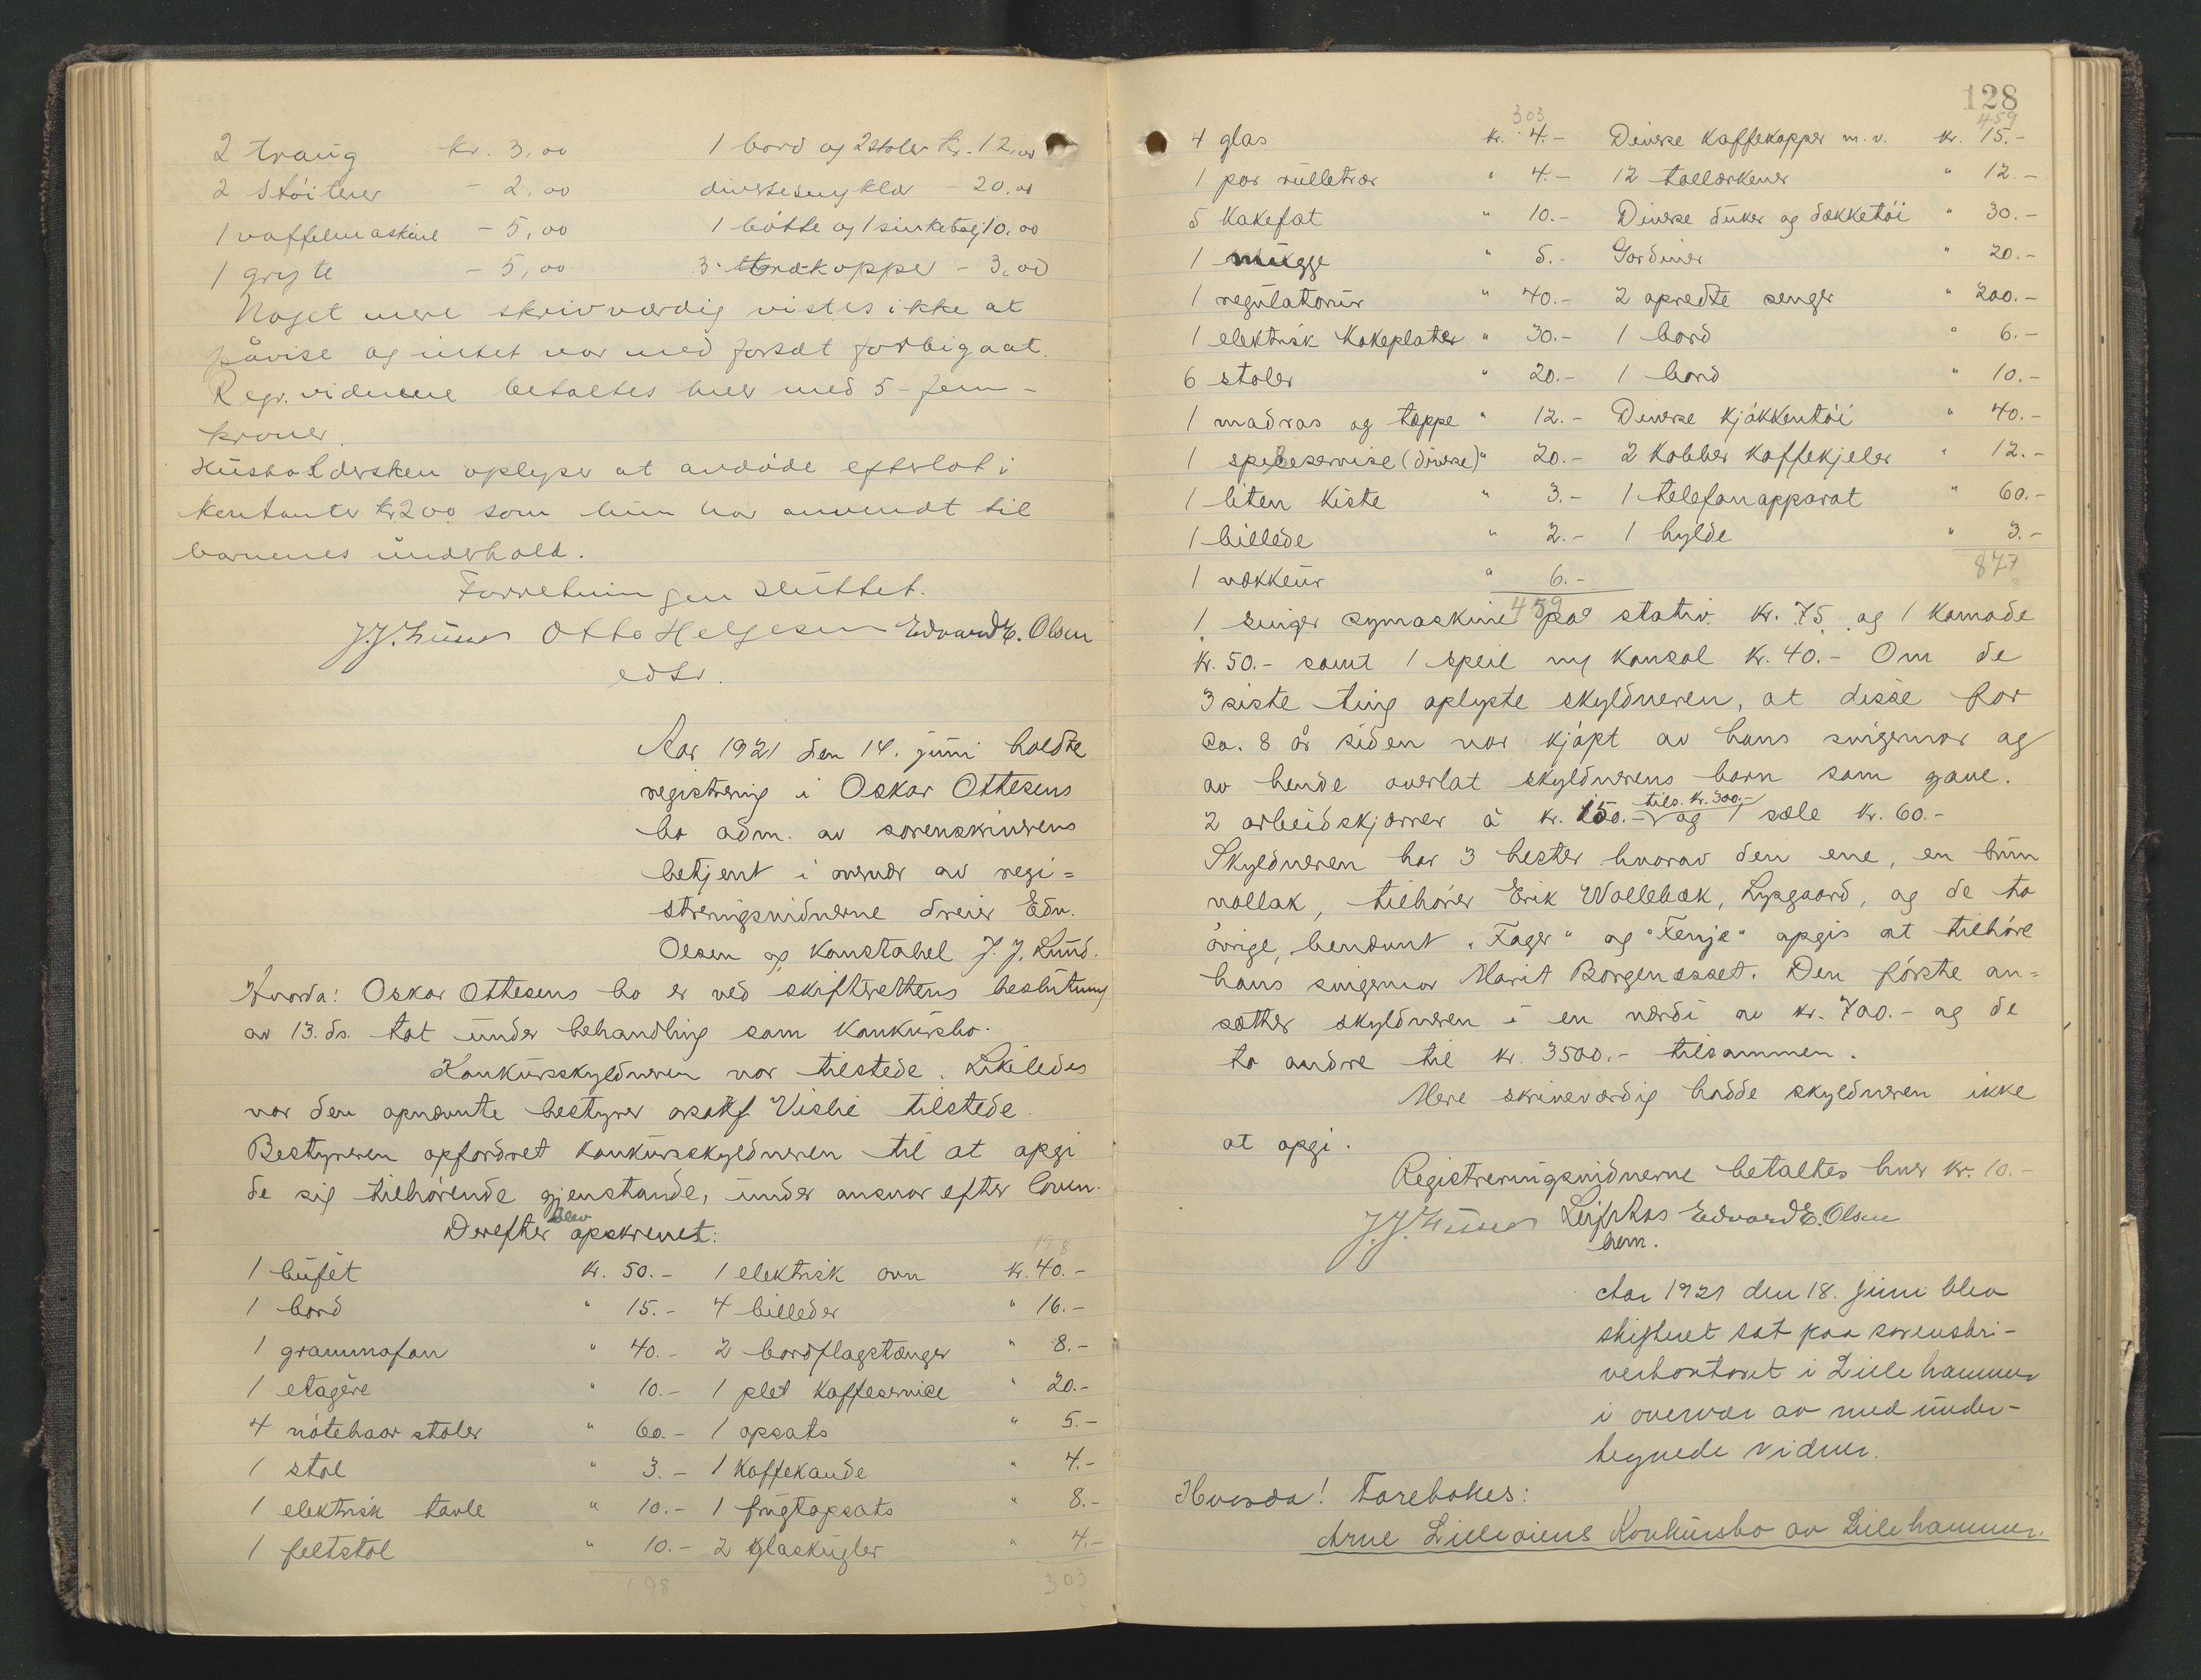 2 traug kr. 3,00 1 bord og 2 stoler kr. 12,00
2 Stöiterer - 2,00 diversesmykker - 20,00
1 vaffelmaskine - 5,00 1 bötte og 1 sinkebalj 10,00
1 gryte - 5,00 3 trækopper - 3,00
Noget mere skrivværdig vistes ikke at
påvise og intet var med forsæt forbigaat.
Regr. vidnene betaltes hver med 5 - fem -
kroner.
Husholdersken oplyser at avdöde efterlot i
kontanter kr 200 som hun har anvendt til
barnenes underhold.
Forretningen sluttet.
J.J. Lund Otto Helgesen Edvard E. Olsen
edsv.
Aar 1921 den 14. juni holdtes
registrering i Oskar Ottesens
bo adm. av sorenskriverens
betjent i overvær av regi=
streringsvidnerne dreier Edv.
Olsen og Konstabel J. J. Lund.
Hvorda: Oskar Ottesens bo er ved skifterettens beslutning
av 13. ds. tat under behandling som Konkursbo.
Konkursskyldneren var tilstede. Likeledes
var den opnævnte bestyrer orsakf. Vislie tilstede.
Bestyreren opfordret konkursskyldneren til at opgi
de sig tilhörende gjenstande, under ansvar efter loven.
Derefter blev opskrevet:
198
1 büfet kr. 50.- 1 elektrisk ovn kr. 40.-
1 bord " 15.- 4 billeder " 16.-
1 grammofon " 40.- 2 bordflagstænger " 8.-
1 etagère " 10.- 1 plet kaffeservice " 20.-
4 nötehaar stoler " 60.- 1 opsats " 5.-
1 stol " 3.- 1 Kaffekande " 4.-
1 elektrisk tavle " 10.- 1 frugtopsats " 8.-
1 feltstol " 10.- 2 glaskugler " 4.-
198 303
128
303 459
4 glas kr. 4.- Diverse Kaffekopper m. v. kr. 15.-
1 par rülletrær " 4.- 12 tallærkener " 12.-
5 Kakefat " 10.- Diverse duker og dækketöi " 30.-
1 mugge " 5.- Gardiner " 20.-
1 regulatorur " 40.- 2 opredte senger " 200.-
1 elektrisk Kokeplater " 30.- 1 bord " 6.-
6 stoler " 20.- 1 bord " 10.-
1 madras og tæppe " 12.- Diverse Kjökkentöi " 40.-
1 spiseservise (diverse) " 20.- 2 Kobber Kaffekjeler " 12.-
1 liten Kiste " 3.- 1 telefonapparat " 60.-
1 billede " 2.- 1 hylde " 3.-
1 vækkeur " 6.- 877
459
1 Singer symaskine på stativ kr. 75 og 1 Komode
kr. 50.- samt 1 speil m/ Konsol kr. 40.- Om de
3 siste ting oplyste skyldneren, at disse for
ca. 8 år siden var kjöpt av hans svigermor og
av hende overlat skyldnerens barn som gave.
2 arbeidskjærrer à kr. 150.- tils. kr. 300,- og 1 sæle kr. 60.-
Skyldneren har 3 hester hvorav den ene, en brun
vallak, tilhörer Erik Wallebæk, Lysgaard, og de to
övrige, benævnt "Fager" og "Fenje" opgis at tilhöre
hans svigermor Marit Borgenæsset. Den förste an=
sætter skyldneren i en værdi av kr. 700.- og de
to andre til kr. 3500.- tilsammen.
Mere skriveværdig hadde skyldneren ikke
at opgi.
Registreringsvidnerne betaltes hver kr. 10.-
J.J. Lund Leif Aas Edvard E. Olsen
bem.
Aar 1921 den 18. juni blev
skifteret sat paa sorenskri-
verkontoret i Lillehammer
i overvær av med under-
tegnede vidner.
Hvorda! Forebokes:
Arne Lilleöiens Konkursbo av Lillehammer.